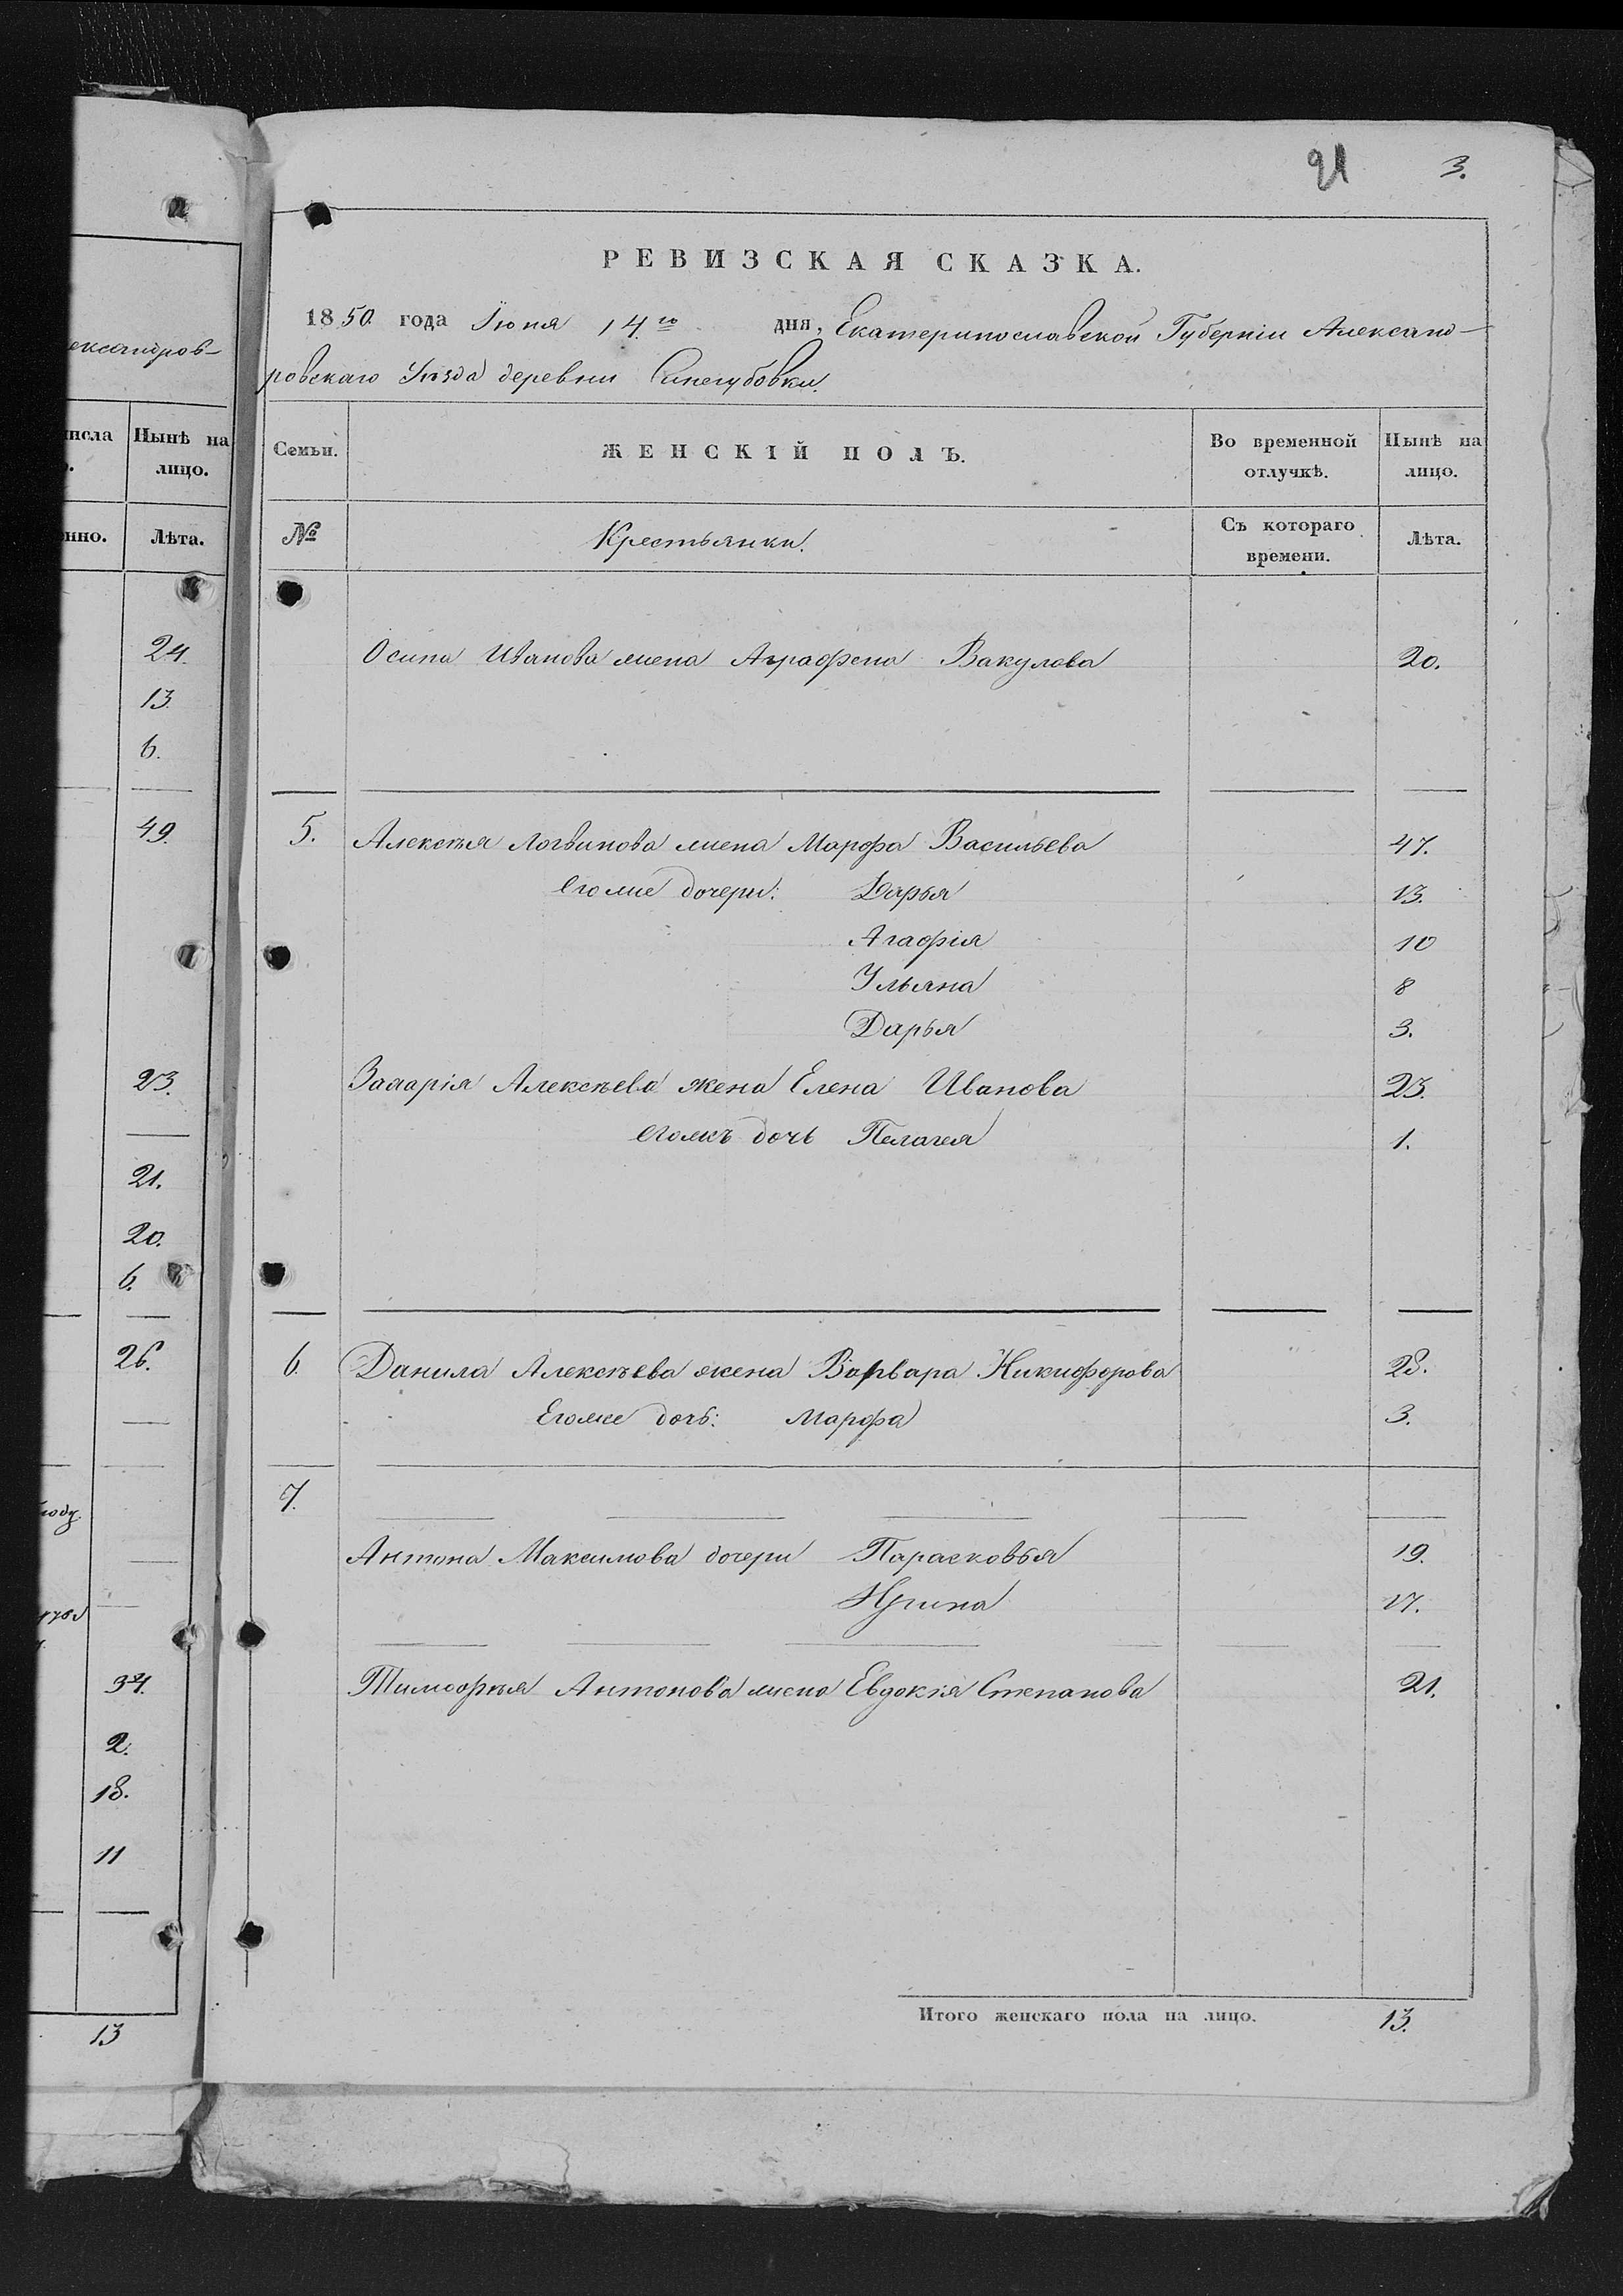 ександров-
исла Нынѣ на
лицо.
нно. Лѣта.
24.
13.
6.
49.
23.
21.
20.
6.
26.
34.
2.
18.
11
13
21 3.
РЕВИЗСКАЯ СКАЗКА.
1850 года Іюня 14го дня, Екатеринославской Губерніи Александ-
ровскаго Уѣзда деревни Синегубовки.
Семьи. ЖЕНСКІЙ ПОЛЪ. Во временной отлучкѣ. Нынѣ на лицо.
№ Крестьянки. Съ котораго времени. Лѣта.
Осипа Иванова жена Аграфена Вакулова 20.
5. Алексѣя Логвинова жена Марфа Васильева 47.
Егоже дочери: Дарья 13.
Агафія 10
Ульяна 8
Дарья 3.
Захарія Алексѣева жена Елена Иванова 23.
егожъ дочь Пелагея 1.
6. Данила Алексѣева жена Варвара Никифорова 28.
Егоже дочь: Марфа 3.
7.
Антона Максимова дочери Парасковья 19.
Ирина 17.
Тимофѣя Антонова жена Евдокія Степанова 21.
Итого женскаго пола на лицо. 13.